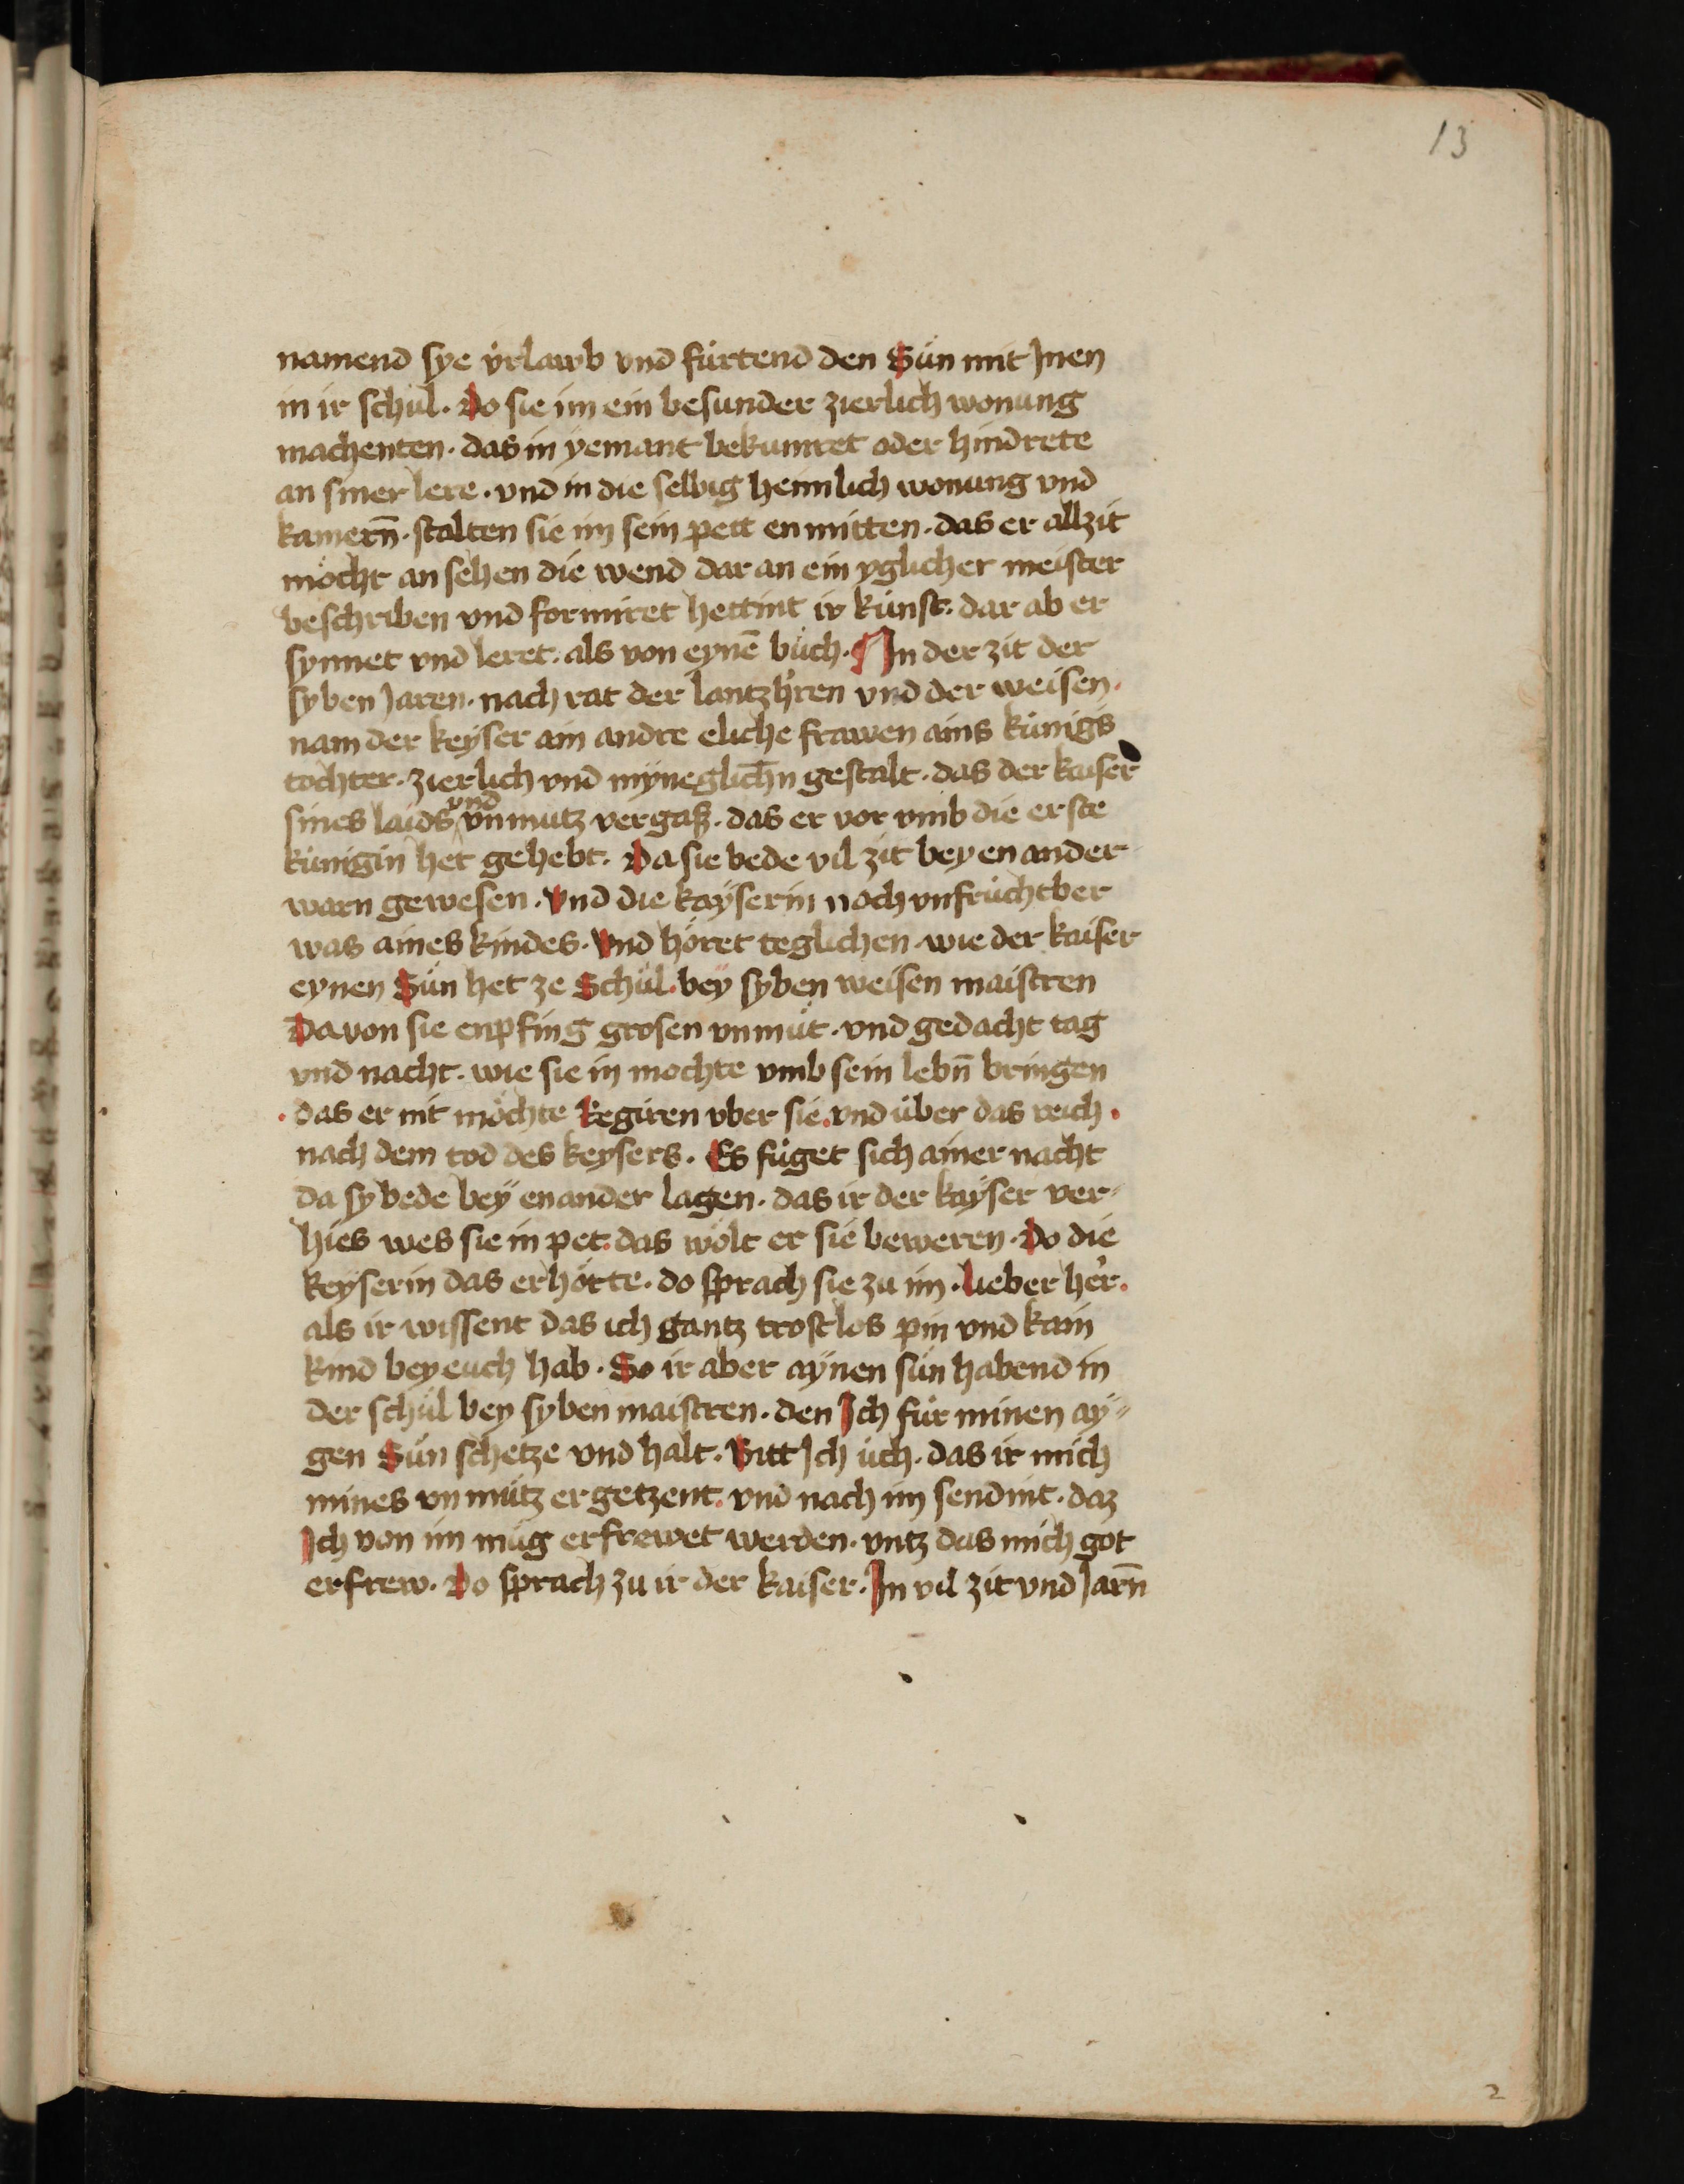 13
namend sye vrlawb vnd fürtend den Sün mit Jnen
in ir schůl. Do sie im ein besunder zierlich wonung
machenten. das in yemant bekumret oder hindrete
an siner lere. vnd in die selbig heimlich wonung vnd
kamern̄. stalten sie im sein pett en mitten. das er allzit
möcht an sehen die wend dar an ein yglicher meister
beschriben vnd formiret hettint ir kunst. dar ab er
synnet vnd leret. als von eynē bůch. ¶ Jn der zit der
syben Jaren. nach rat der lantzh'ren vnd der weisen.
nam der keyser ain andre eliche frawen ains künigs
tochter. zierlich vnd myneglich̄n gestalt. das der kaiser
sines laids vnd vnmutz vergaß. das er vor vmb die erste
künigin het gehebt. Da sie bede vil zit bey en ander
warn gewesen. Vnd die kayserin noch vnfruchtber
was aines kindes. Vnd höret teglichen wie der kaiser
eynen Sün het ze Schůl. bey syben weisen maistren
Da von sie enpfing grosen vnmůt. vnd gedacht tag
vnd nacht. wie sie in mochte vmb sein lebn̄ bringen
. das er nit möchte Regiren vber sie. vnd über das reich.
nach dem tod des keysers. Es fůget sich ainer nacht
da sy bede bey en ander lagen. das ir der kayser ver-
hies wes sie in pet. das wölt er sie beweren. Do die
keyserin das erhörte. do sprach sie zu im. lieber her'.
als ir wissent das ich gantz trostlos pin vnd kain
kind bey euch hab. So ir aber aynen sün habend in
der schůl bey syben maistren. den Jch für minen ay-
gen Sün schetze vnd halt. Bitt Jch üch. das ir mich
mines vnmůtz ergetzent. vnd nach im sendint. daz
Jch von im müg erfrewet werden. vntz das mich got
erfrew. Do sprach zu ir der kaiser. Jn vil zit vnd Jarn̄
2